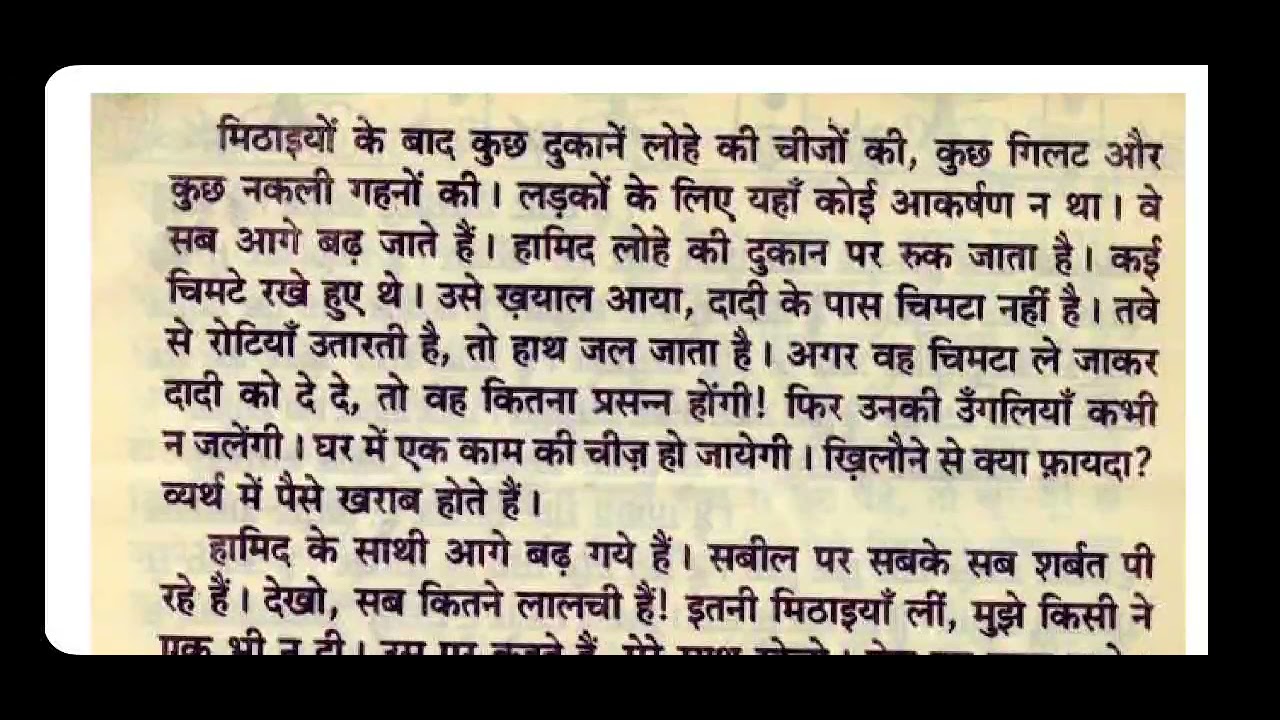 मिठाइयों के बाद कुछ दुकानें लोहे की चीजों की, कुछ गिलट और
कुछ नकली गहनों की। लड़कों के लिए यहाँ कोई आकर्षण न था। वे
सब आगे बढ़ जाते हैं। हामिद लोहे की दुकान पर रुक जाता है। कई
चिमटे रखे हुए थे। उसे ख़याल आया, दादी के पास चिमटा नहीं है। तवे
से रोटियाँ उतारती है, तो हाथ जल जाता है। अगर वह चिमटा ले जाकर
दादी को दे दे, तो वह कितना प्रसन्न होंगी! फिर उनकी उँगलियाँ कभी
न जलेंगी। घर में एक काम की चीज़ हो जायेगी। खि़लौने से क्या फ़ायदा?
व्यर्थ में पैसे खराब होते हैं।
हामिद के साथी आगे बढ़ गये हैं। सबील पर सबके सब शर्बत पी
रहे हैं। देखो, सब कितने लालची हैं! इतनी मिठाइयाँ लीं, मुझे किसी ने
एक भी न दी।